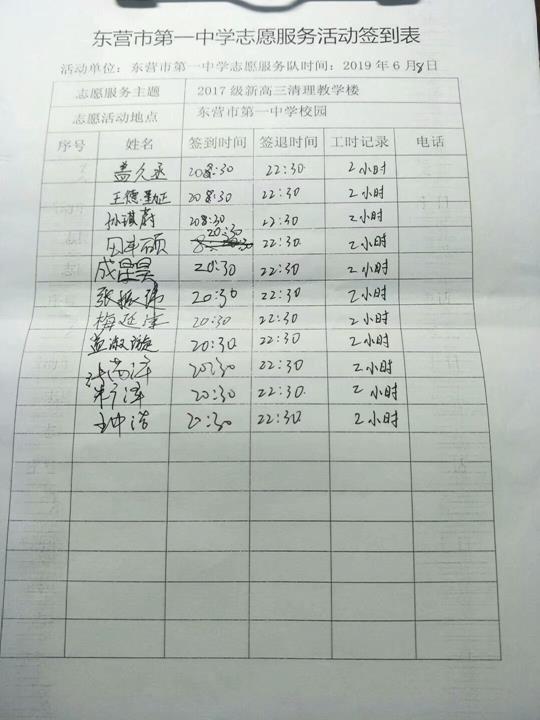 东营市第一中学志愿服务活动签到表
活动单位：东营市第一中学志愿服务队时间：2019 年 6月8日
志愿服务主题 2017 级新高三清理教学楼
志愿活动地点 东营市第一中学校园
序号 姓名 签到时间 签退时间 工时记录 电话
盖久丞 208:30 22:30 2小时
王德勤正 208:30 22:30 2小时
孙琪蔚 208:30 22:30 2小时
20:30 22:30 2小时
成昊 20:30 22:30 2小时
张振 20:30 22:30 2小时
梅延 20:30 22:30 2小时
孟淑璇 20:30 22:30 2小时
20:30 22:30 2小时
20:30 22:30 2小时
20:30 22:30 2小时